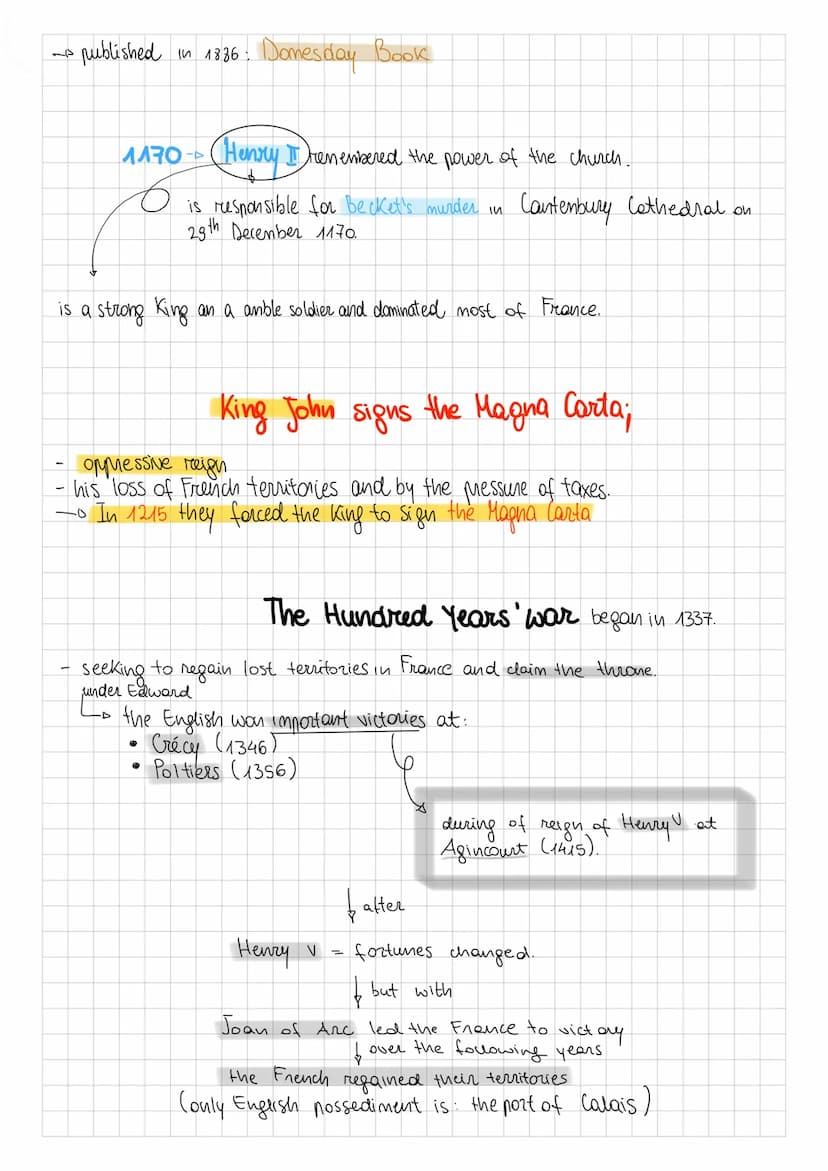 → published in 1886: Domesday Book
1170 → Henry II remembered the power of the church.
is responsible for Becket's murder in Cantenbury Cathedral on
29th December 1170.
is a strong King an a amble soldier and dominated most of France.
King John signs the Magna Carta;
- oppressive reign
- his loss of French territories and by the pressure of taxes.
→ In 1215 they forced the King to sign the Magna Carta
The Hundred Years' war began in 1337.
- seeking to regain lost territories in France and claim the throne.
under Edward
→ the English won important victories at:
• Crécy (1346)
• Poitiers (1356)
during of reign of Henry V at
Agincourt (1415).
↓ after
Henry V = fortunes changed.
↓ but with
Joan of Arc led the France to victory
↓ over the following years
the French regained their territories
(only English possediment is: the port of Calais)